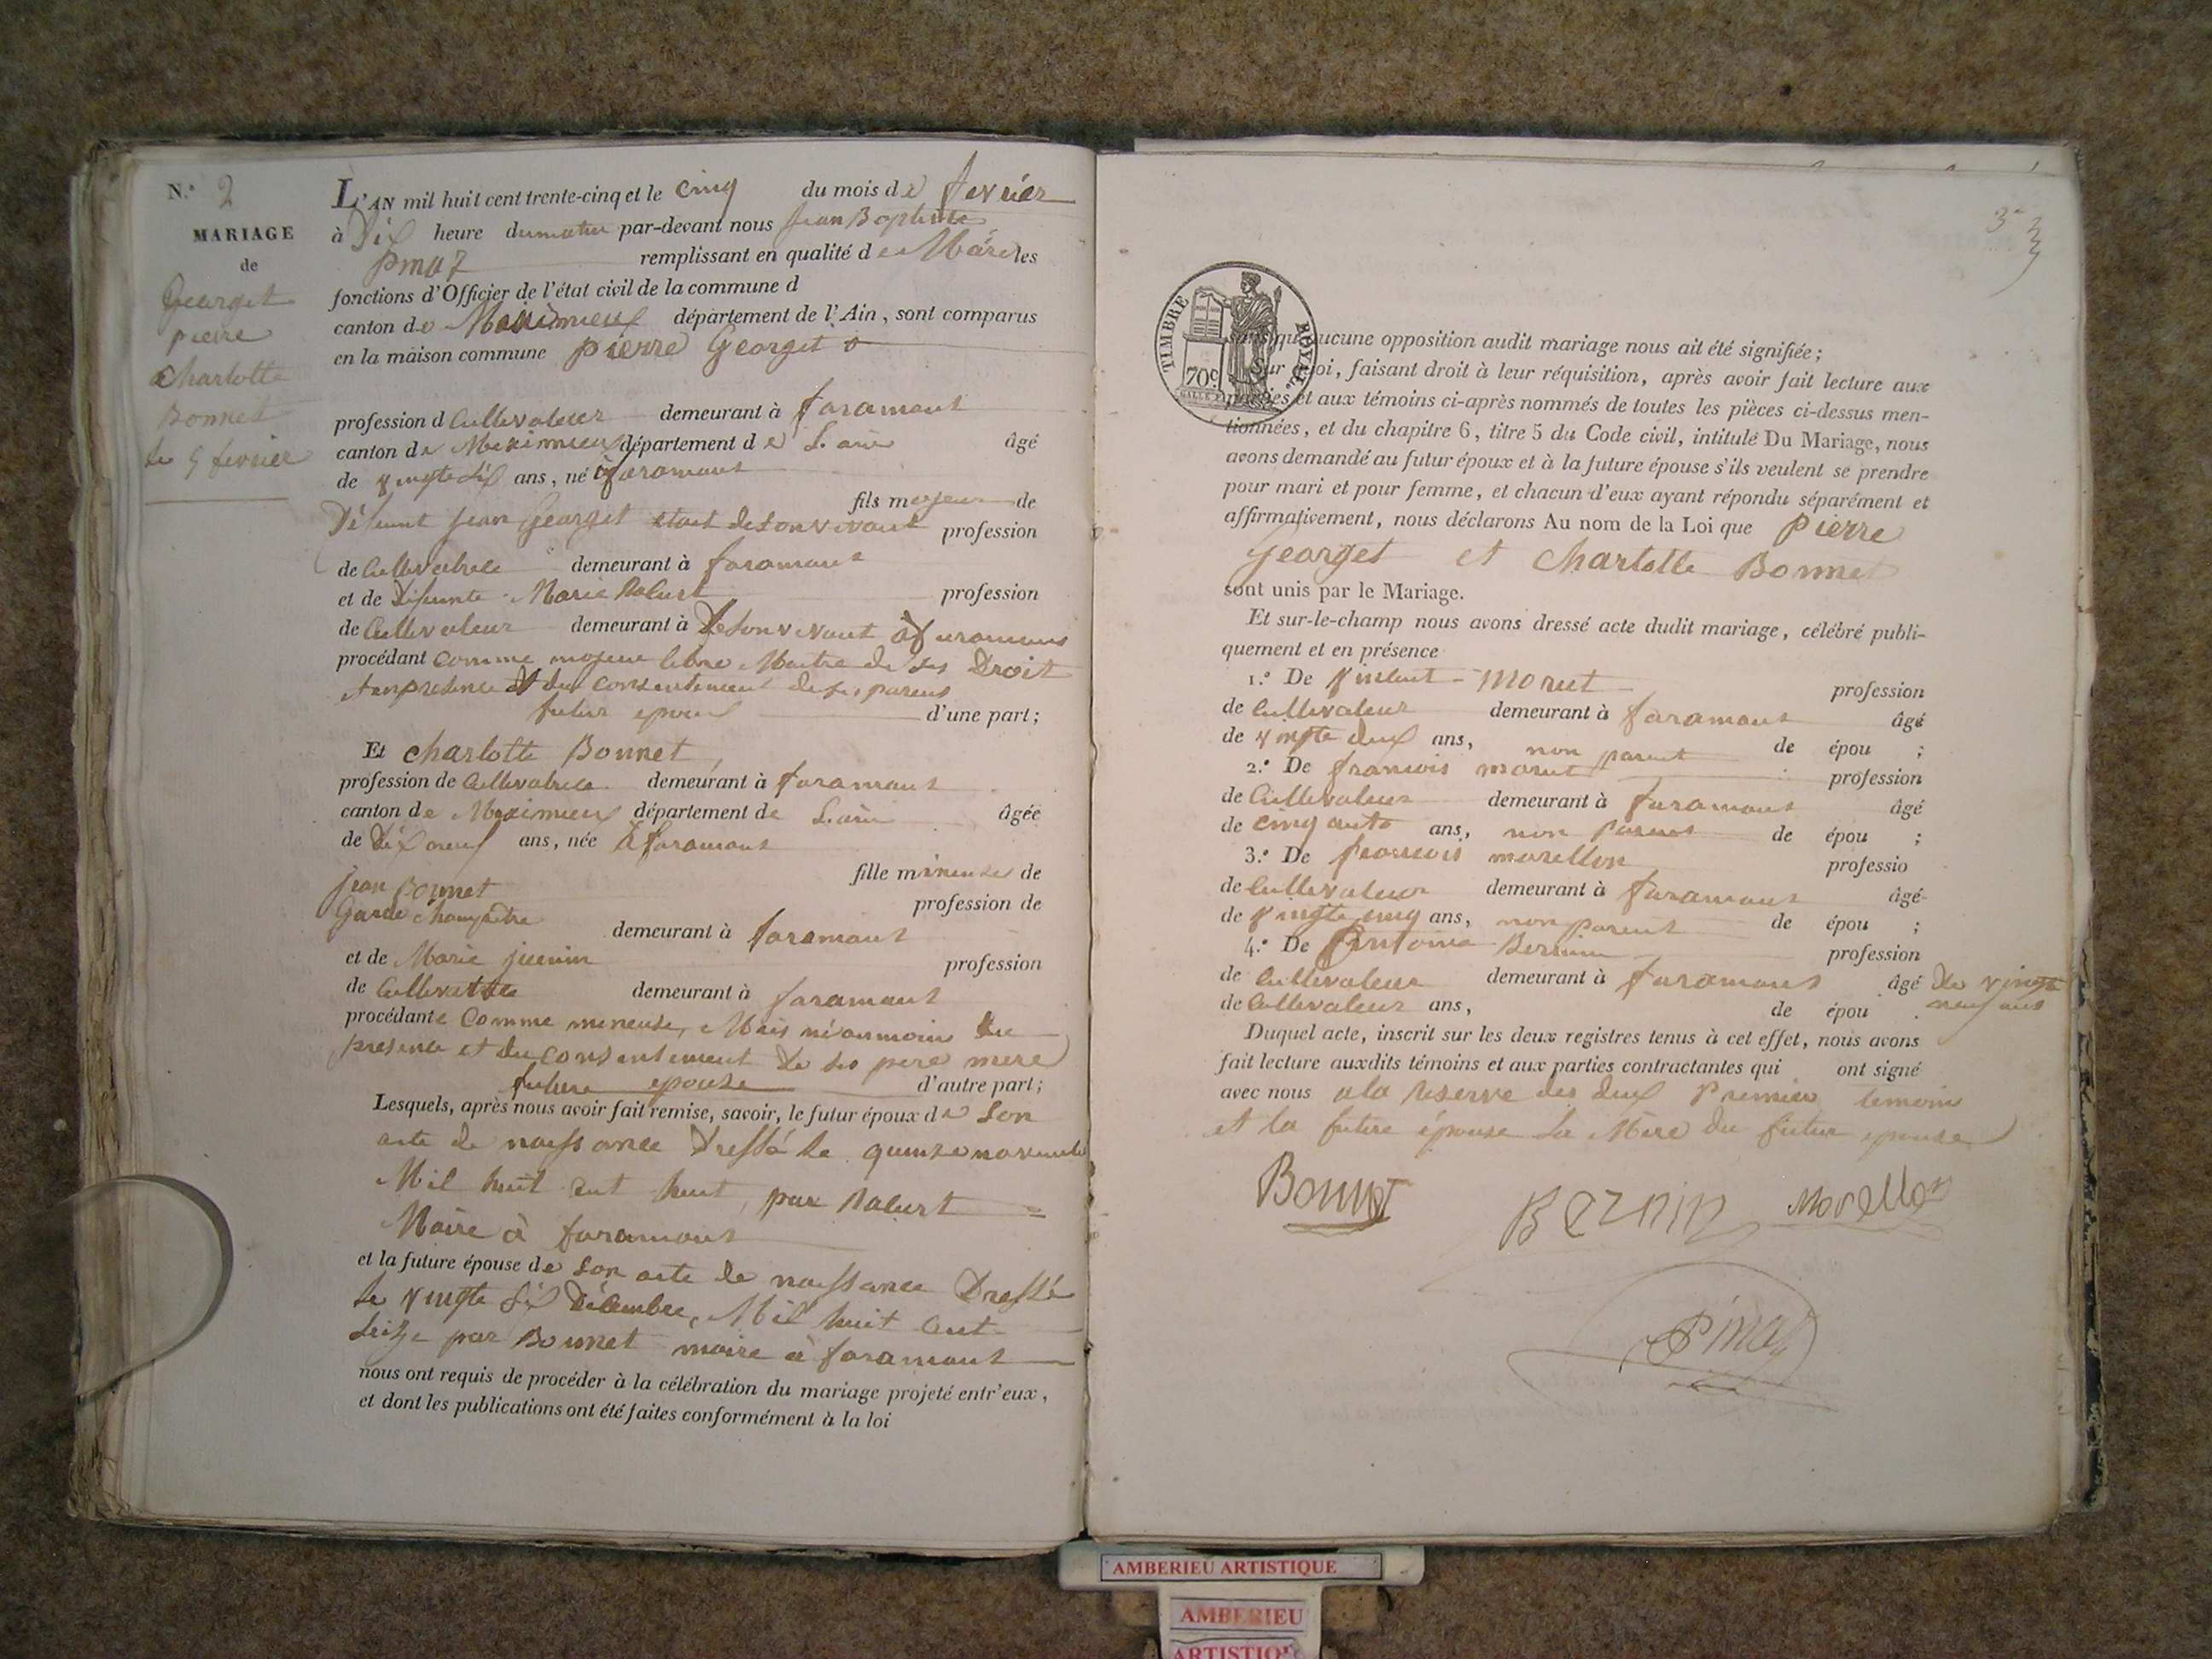 N.° 2
MARIAGE
de
Georget
pierre
Charlotte
Bonnet
le 5 fevrier
L'AN mil huit cent trente-cinq et le cinq du mois de fevrier
à Dix heure dumatin par-devant nous Jean Baptiste
pmaz remplissant en qualité de Maire les
fonctions d'Officier de l'état civil de la commune d
canton de Maximieux département de l'Ain, sont comparus
en la maison commune pierre Georget
profession d Cultivateur demeurant à faramant
canton de Meximieux département de L'ain âgé
de vingte six ans, né à faramant
fils majeur de
Défunt Jean Georget etant desonvivant profession
de Cultivatrice demeurant à faramant
et de Défunte Marie Rabust profession
de Cultivateur demeurant à Desonvivant à faramans
procédant comme majeur libre Maitre de ses Droit
et enpresence et du consentement de ses parens
futur epoux d'une part;
Et charlotte Bonnet,
profession de Cultivatrice demeurant à faramant
canton de Meximieux département de L'ain âgée
de Dix neuf ans, née à faramant
fille mineuse de
Jean Bonnet
Garde Champêtre profession de
demeurant à faramant
et de Marie juenin profession
de Cultivatrice demeurant à faramant
procédante Comme mineuse, Mais néanmoins
presence et du consentement de ses pere mere
future epouse d'autre part;
Lesquels, après nous avoir fait remise, savoir, le futur époux de son
acte de naissance Dressé le quinze novembre
Mil huit cent huit, par Rabust
Maire à faramant
et la future épouse de son acte de naissance Dressé
le vingte six Décembre, Mil huit cent
seize par Bonnet maire à faramant
nous ont requis de procéder à la célébration du mariage projeté entr'eux,
et dont les publications ont été faites conformément à la loi
3
TIMBRE ROYAL
70c
sans qu'aucune opposition audit mariage nous ait été signifiée;
Sur quoi, faisant droit à leur réquisition, après avoir fait lecture aux
parties et aux témoins ci-après nommés de toutes les pièces ci-dessus men-
tionnées, et du chapitre 6, titre 5 du Code civil, intitulé Du Mariage, nous
avons demandé au futur époux et à la future épouse s'ils veulent se prendre
pour mari et pour femme, et chacun d'eux ayant répondu séparément et
affirmativement, nous déclarons Au nom de la Loi que pierre
Georget et Charlotte Bonnet
sont unis par le Mariage.
Et sur-le-champ nous avons dressé acte dudit mariage, célébré publi-
quement et en présence
1.° De Vincent Morut profession
de Cultivateur demeurant à faramant âgé
de vingte deux ans, non parent de épou ;
2.° De francois morut profession
de Cultivateur demeurant à faramant âgé
de cinq ante ans, non parent de épou ;
3.° De francois morellon professio
de Cultivateur demeurant à faramant âgé
de vingte cinq ans, non parent de épou ;
4.° De Antoine Bernin profession
de Cultivateur demeurant à faramant âgé De vingte
neuf ans
de Cultivateur ans, de épou .
Duquel acte, inscrit sur les deux registres tenus à cet effet, nous avons
fait lecture auxdits témoins et aux parties contractantes qui ont signé
avec nous a la reserve des deux Premier temoins
et la future épouse la Mere du futur epouse
Bonnet
Bernin
Morellon
Pmaz
AMBERIEU ARTISTIQUE
AMBERIEU
ARTISTIQ